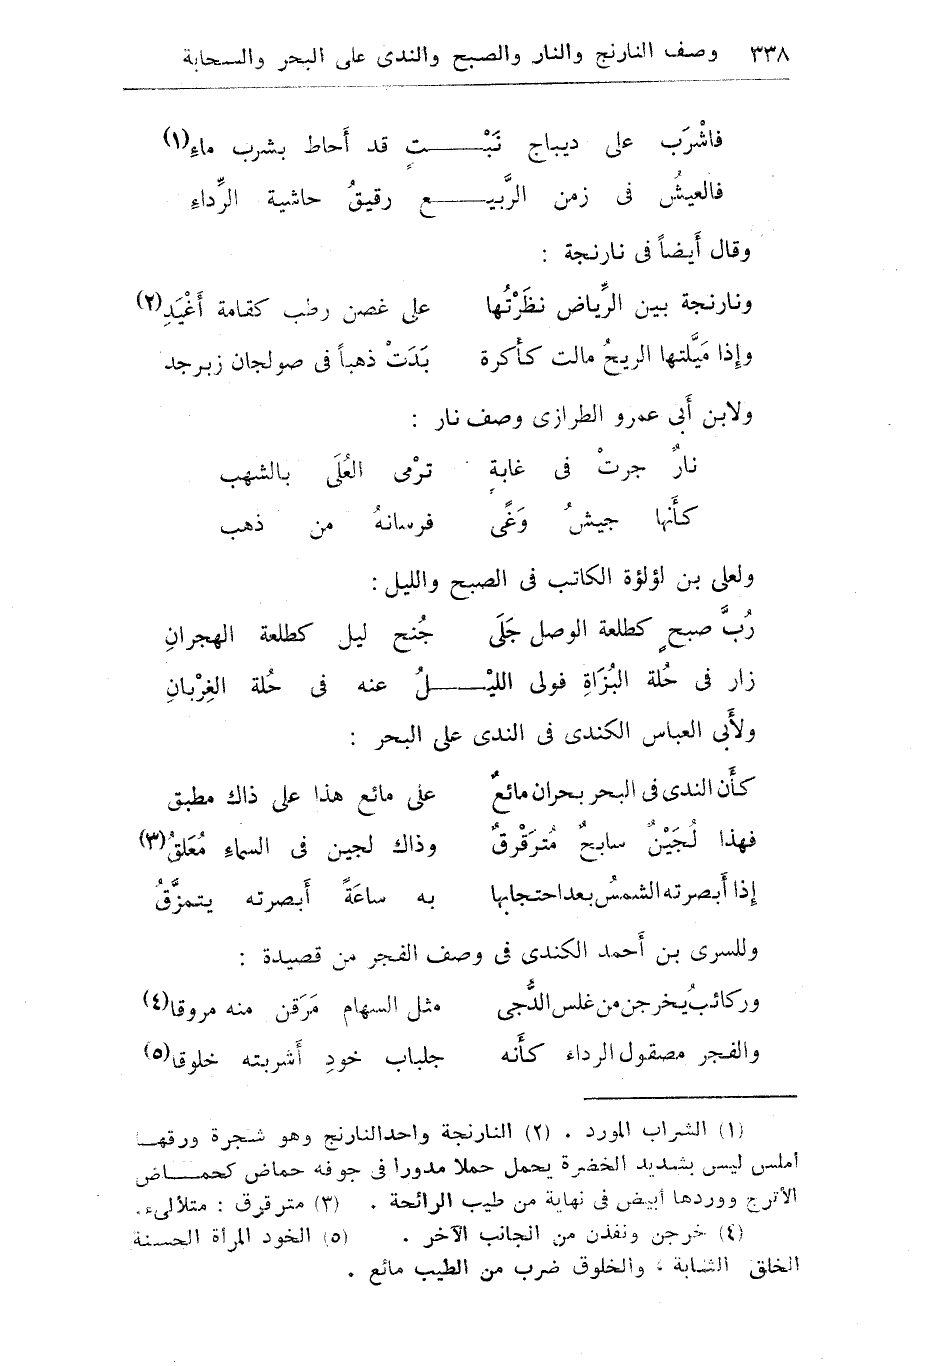 ٣٣٨ وصف النارنج والنار والصبح والندى على البحر والسحابة
فاشْرَب على ديباج نَبْــــتٍ قد أَحاط بشرب ماءِ(١)
فالعيشُ فى زمن الرَّبيــــع رقيقُ حاشية الرِّداءِ
وقال أَيضاً فى نارنجة :
ونارنجة بين الرِّياض نظَرْتُها على غصن رطب كقامة أَغْيَدِ(٢)
وإذا مَيَّلتها الريحُ مالت كأَكرة بَدَتْ ذهباً فى صولجان زبرجد
ولابن أَبى عمرو الطرازى وصف نار :
نارٌ جرتْ فى غابةٍ ترْمى العُلَى بالشهب
كأَنها جيشُ وَغًى فرسانهُ من ذهب
ولعلى بن لؤلؤة الكاتب فى الصبح والليل :
رُبَّ صبحٍ كطلعة الوصل جَلَى جُنح ليل كطلعة الهجرانِ
زار فى حُلة البُزَاةِ فولى الليْــــلُ عنه فى حُلة الغِرْبانِ
ولأَبى العباس الكندى فى الندى على البحر :
كأَن الندى فى البحر بحران مائعٌ على مائع هذا على ذاك مطبق
فهذا لُجَيْنٌ سابحٌ مُترَقْرقٌ وذاك لجين فى السماءِ مُعَلقُ(٣)
إذا أَبصرته الشمسُ بعد احتجابها به ساعَةً أَبصرته يتمزَّقُ
وللسرى بن أَحمد الكندى فى وصف الفجر من قصيدة :
وركائبٌ يخرجن من غلس الدُّجى مثل السهام مَرَقن منه مروقا(٤)
والفجر مصقول الرداء كأَنه جلباب خودِ أَشربته خلوقا(٥)
(١) الشراب المورد . (٢) النارنجة واحد النارنج وهو شجرة ورقهــا
أملس ليس بشديد الخضرة يحمل حملا مدورا فى جوفه حماض كحمــاض
الأترج ووردها أبيض فى نهاية من طيب الرائحة . (٣) مترقرق : متلألىء.
(٤) خرجن ونفذن من الجانب الآخر . (٥) الخود المرأة الحسنة
الخلق الشابة ، والخلوق ضرب من الطيب مائع .